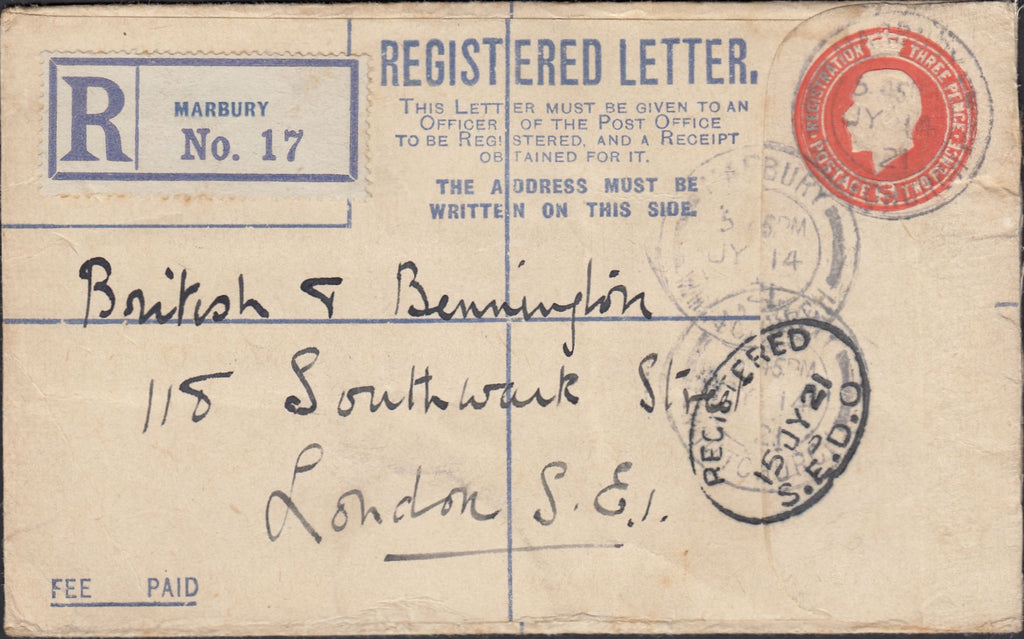 R
MARBURY
No. 17
REGISTERED LETTER.
THIS LETTER MUST BE GIVEN TO AN
OFFICER OF THE POST OFFICE
TO BE REGISTERED, AND A RECEIPT
OBTAINED FOR IT.
THE ADDRESS MUST BE
WRITTEN ON THIS SIDE.
REGISTRATION THREE PENCE
POSTAGE TWO PENCE
JY 14
21
MARBURY
JY 14
21
WHITCHURCH
British & Bennington
118 Southwark St
London S.E.1.
REGISTERED
15 JY 21
S.E.D.O
FEE PAID